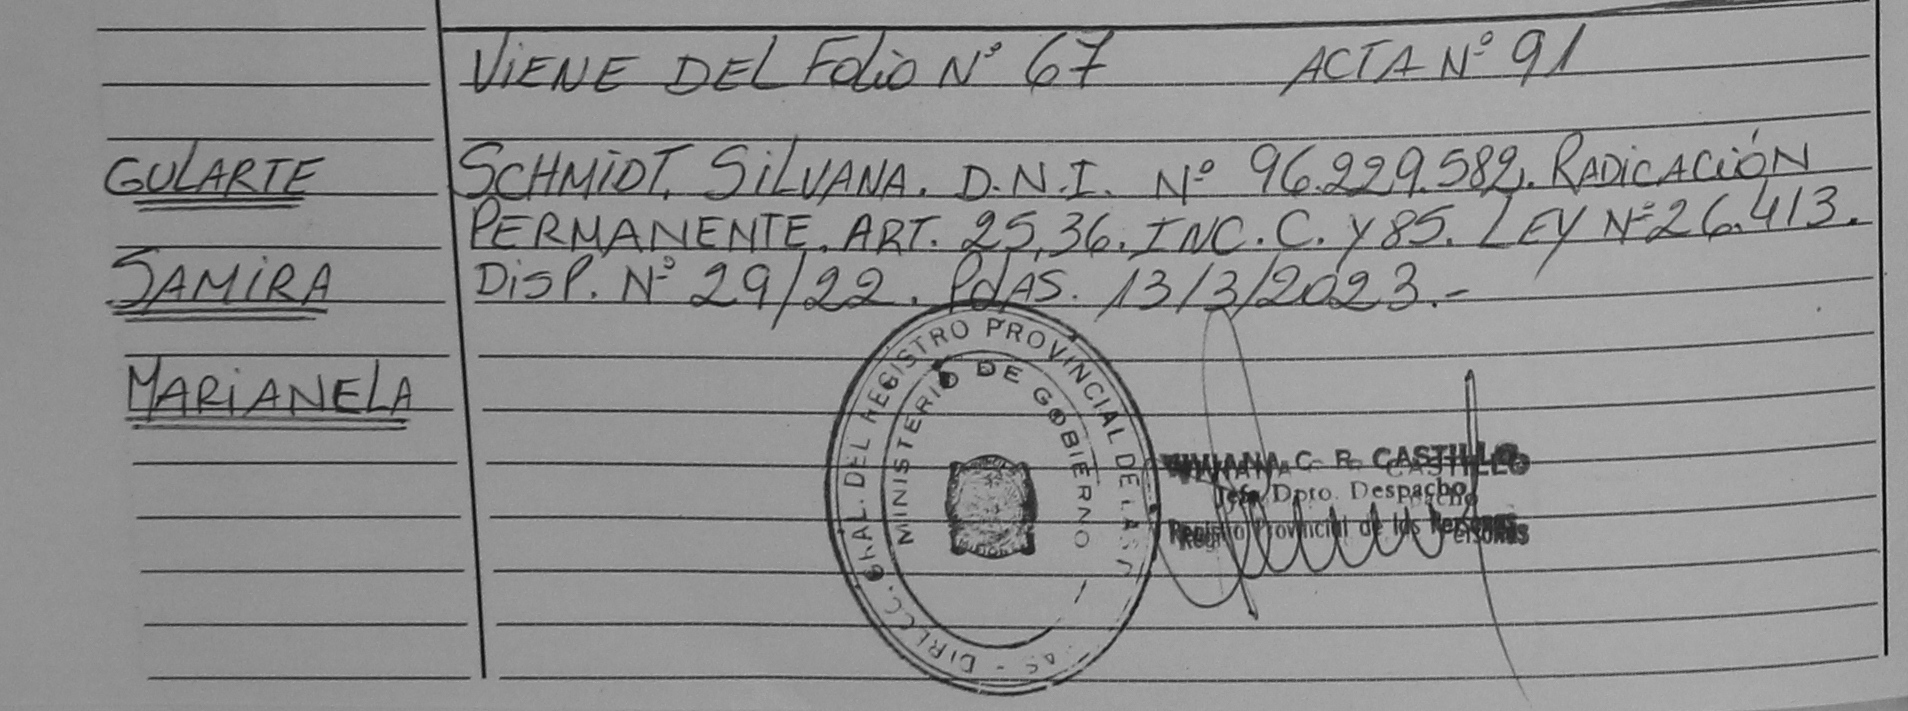 ViENE DEL Folio Nº 67 ACTA Nº 91
GULARTE
SAMiRA
MARiANELA
SCHMiDT, SiLVANA. D.N.I. Nº 96.229.582. RADiCACiÓN
PERMANENTE. ART. 25,36. INC. C. Y 85. LEY Nº 26.413.
DiSP. Nº 29/22. PdAS. 13/3/2023.-
DIRECC. GRAL. DEL REGISTRO PROVINCIAL DE LAS
MINISTERIO DE GOBIERNO
C. R. CASTILLO
Jefe Dpto. Despacho
Registro Provincial de las Personas